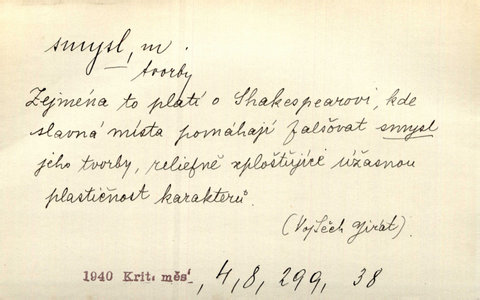 smysl, m.
tvorby
Zejména to platí o Shakespearovi, kde
slavná místa pomáhají falšovat smysl
jeho tvorby, reliefně zplošťujíce úžasnou
plastičnost karakterů.
(Vojtěch Jirát).
1940 Krit. měs., 4, 8, 299, 38